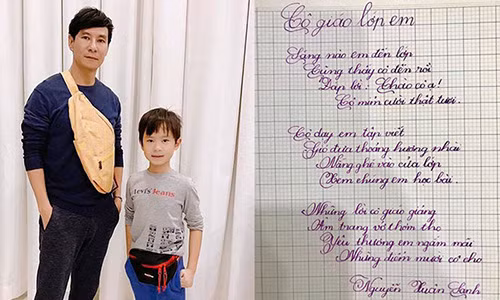 Levi's Jeans
Cô giáo lớp em
Sáng nào em đến lớp
Cũng thấy cô đến rồi
Đáp lời: Chào cô ạ!
Cô mỉm cười thật tươi.
Cô dạy em tập viết
Gió đưa thoảng hương nhài
Nắng ghé vào cửa lớp
Xem chúng em học bài.
Những lời cô giáo giảng
Ấm trang vở thơm tho
Yêu thương em ngắm mãi
Những điểm mười cô cho
Nguyễn Xuân Sanh